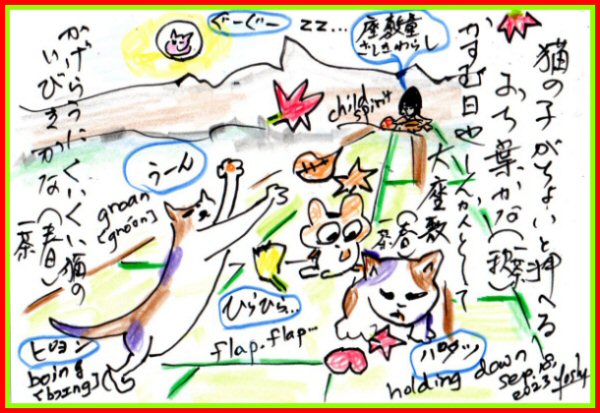 猫の子がちょいと押へる
おち葉かな(秋)一茶
かすむ日やしんかんとして
大座敷(春)一茶
座敷童
ざしきわらし
child
spirit
zz...
ぐーぐー
かげらうにくいくい猫の
いびきかな(春)
一茶
うーん
groan
[gróun]
ひらひら..
flap.flap...
ピョン
boing
[bɔing]
パタッ
holding down
sep.18,
2023